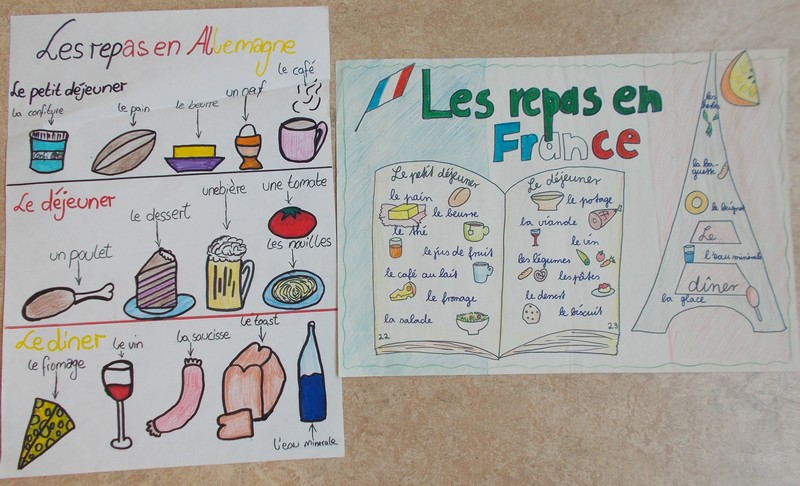 Les repas en Allemagne
Le petit déjeuner
la confiture
le pain
le beurre
un œuf
le café
Le déjeuner
un poulet
le dessert
une bière
une tomate
les nouilles
Le dîner
le fromage
le vin
la saucisse
le toast
l'eau minerale
Les repas en
France
Le petit déjeuner
le pain
le beurre
le thé
le jus de fruit
le café au lait
le fromage
la salade
22
Le déjeuner
le potage
la viande
le vin
les légumes
les pâtes
le desert
le biscuit
23
la ba-
guette
le beignet
Le
l'eau minerale
dîner
la glace